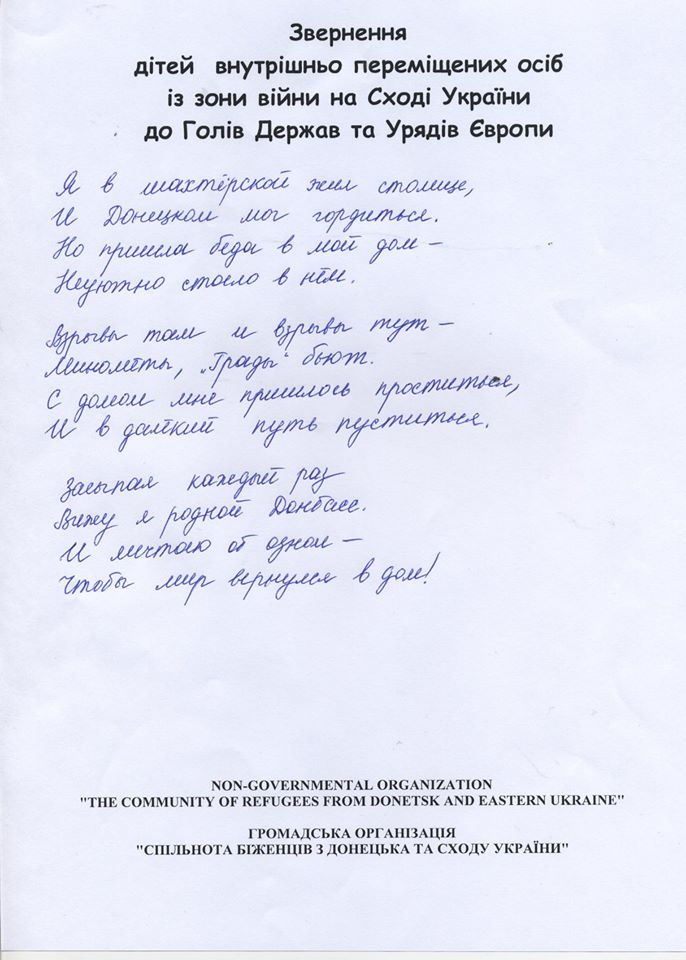 Звернення
дітей внутрішньо переміщених осіб
із зони війни на Сході України
до Голів Держав та Урядів Європи
Я в шахтёрской жил столице,
И Донецком мог гордиться.
Но пришла беда в мой дом –
Неуютно стало в нём.
Взрывы там и взрывы тут –
Миномёты, „Грады“ бьют.
С домом мне пришлось проститься,
И в далёкий путь пуститься.
Засыпая каждый раз
Вижу я родной Донбасс.
И мечтаю об одном –
Чтобы мир вернулся в дом!
NON-GOVERNMENTAL ORGANIZATION
"THE COMMUNITY OF REFUGEES FROM DONETSK AND EASTERN UKRAINE"
ГРОМАДСЬКА ОРГАНІЗАЦІЯ
"СПІЛЬНОТА БІЖЕНЦІВ З ДОНЕЦЬКА ТА СХОДУ УКРАЇНИ"